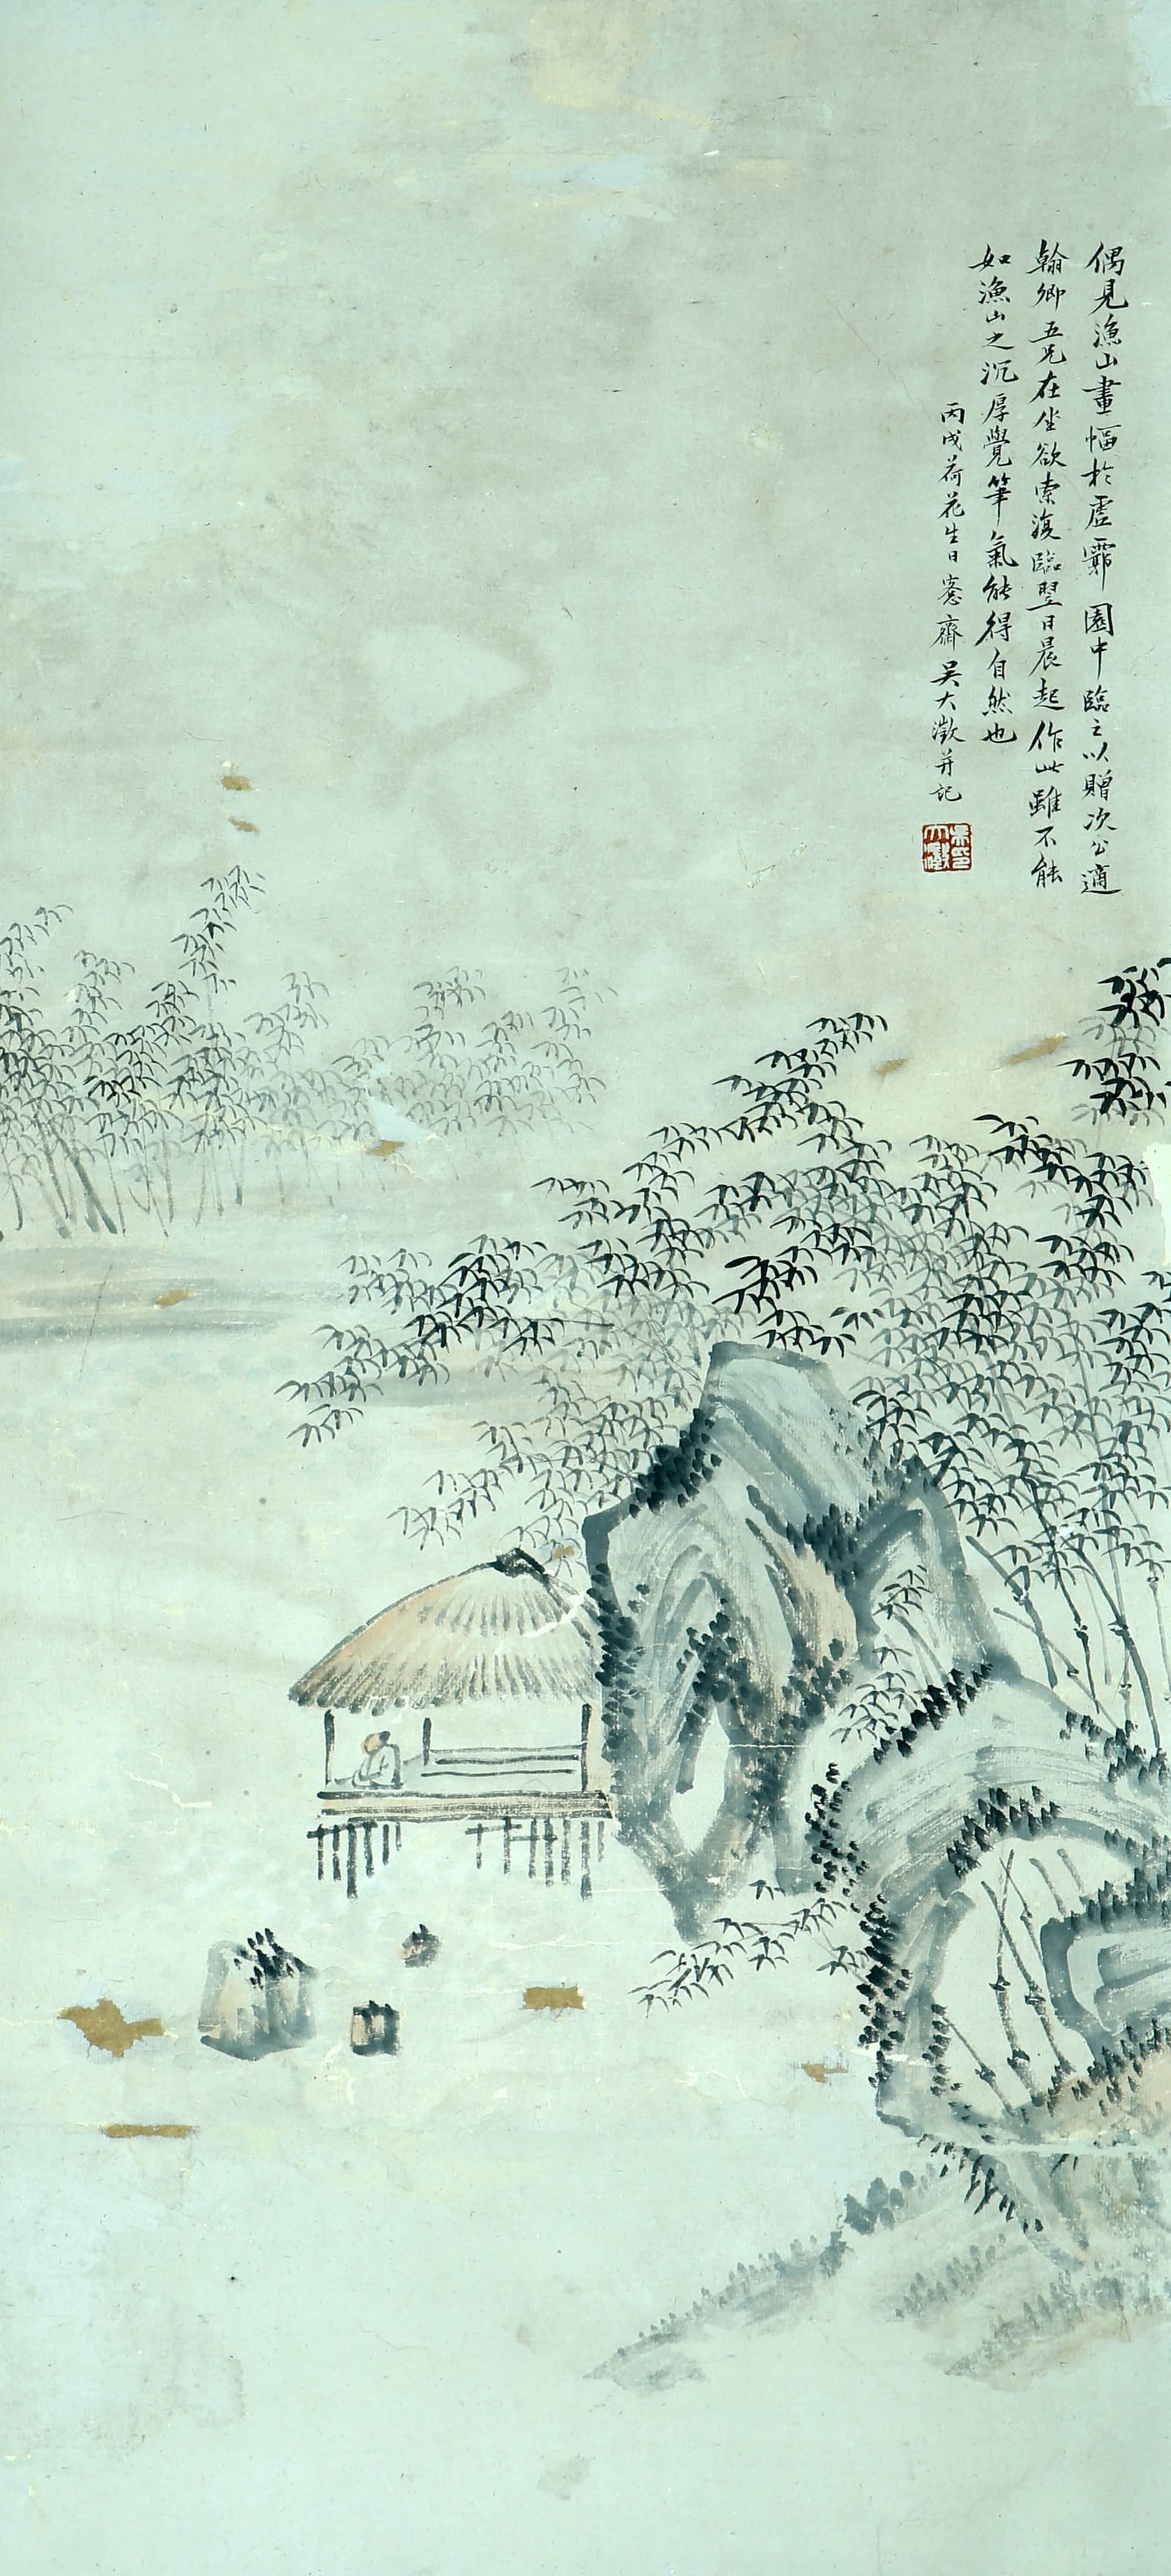 偶見漁山畫幅於虛霩園中臨之以贈次公適
翰卿五兄在坐欲索復臨翌日晨起作此雖不能
如漁山之沉厚覺筆氣能得自然也
丙戌荷花生日愙齋吳大澂并記
吳大澂印